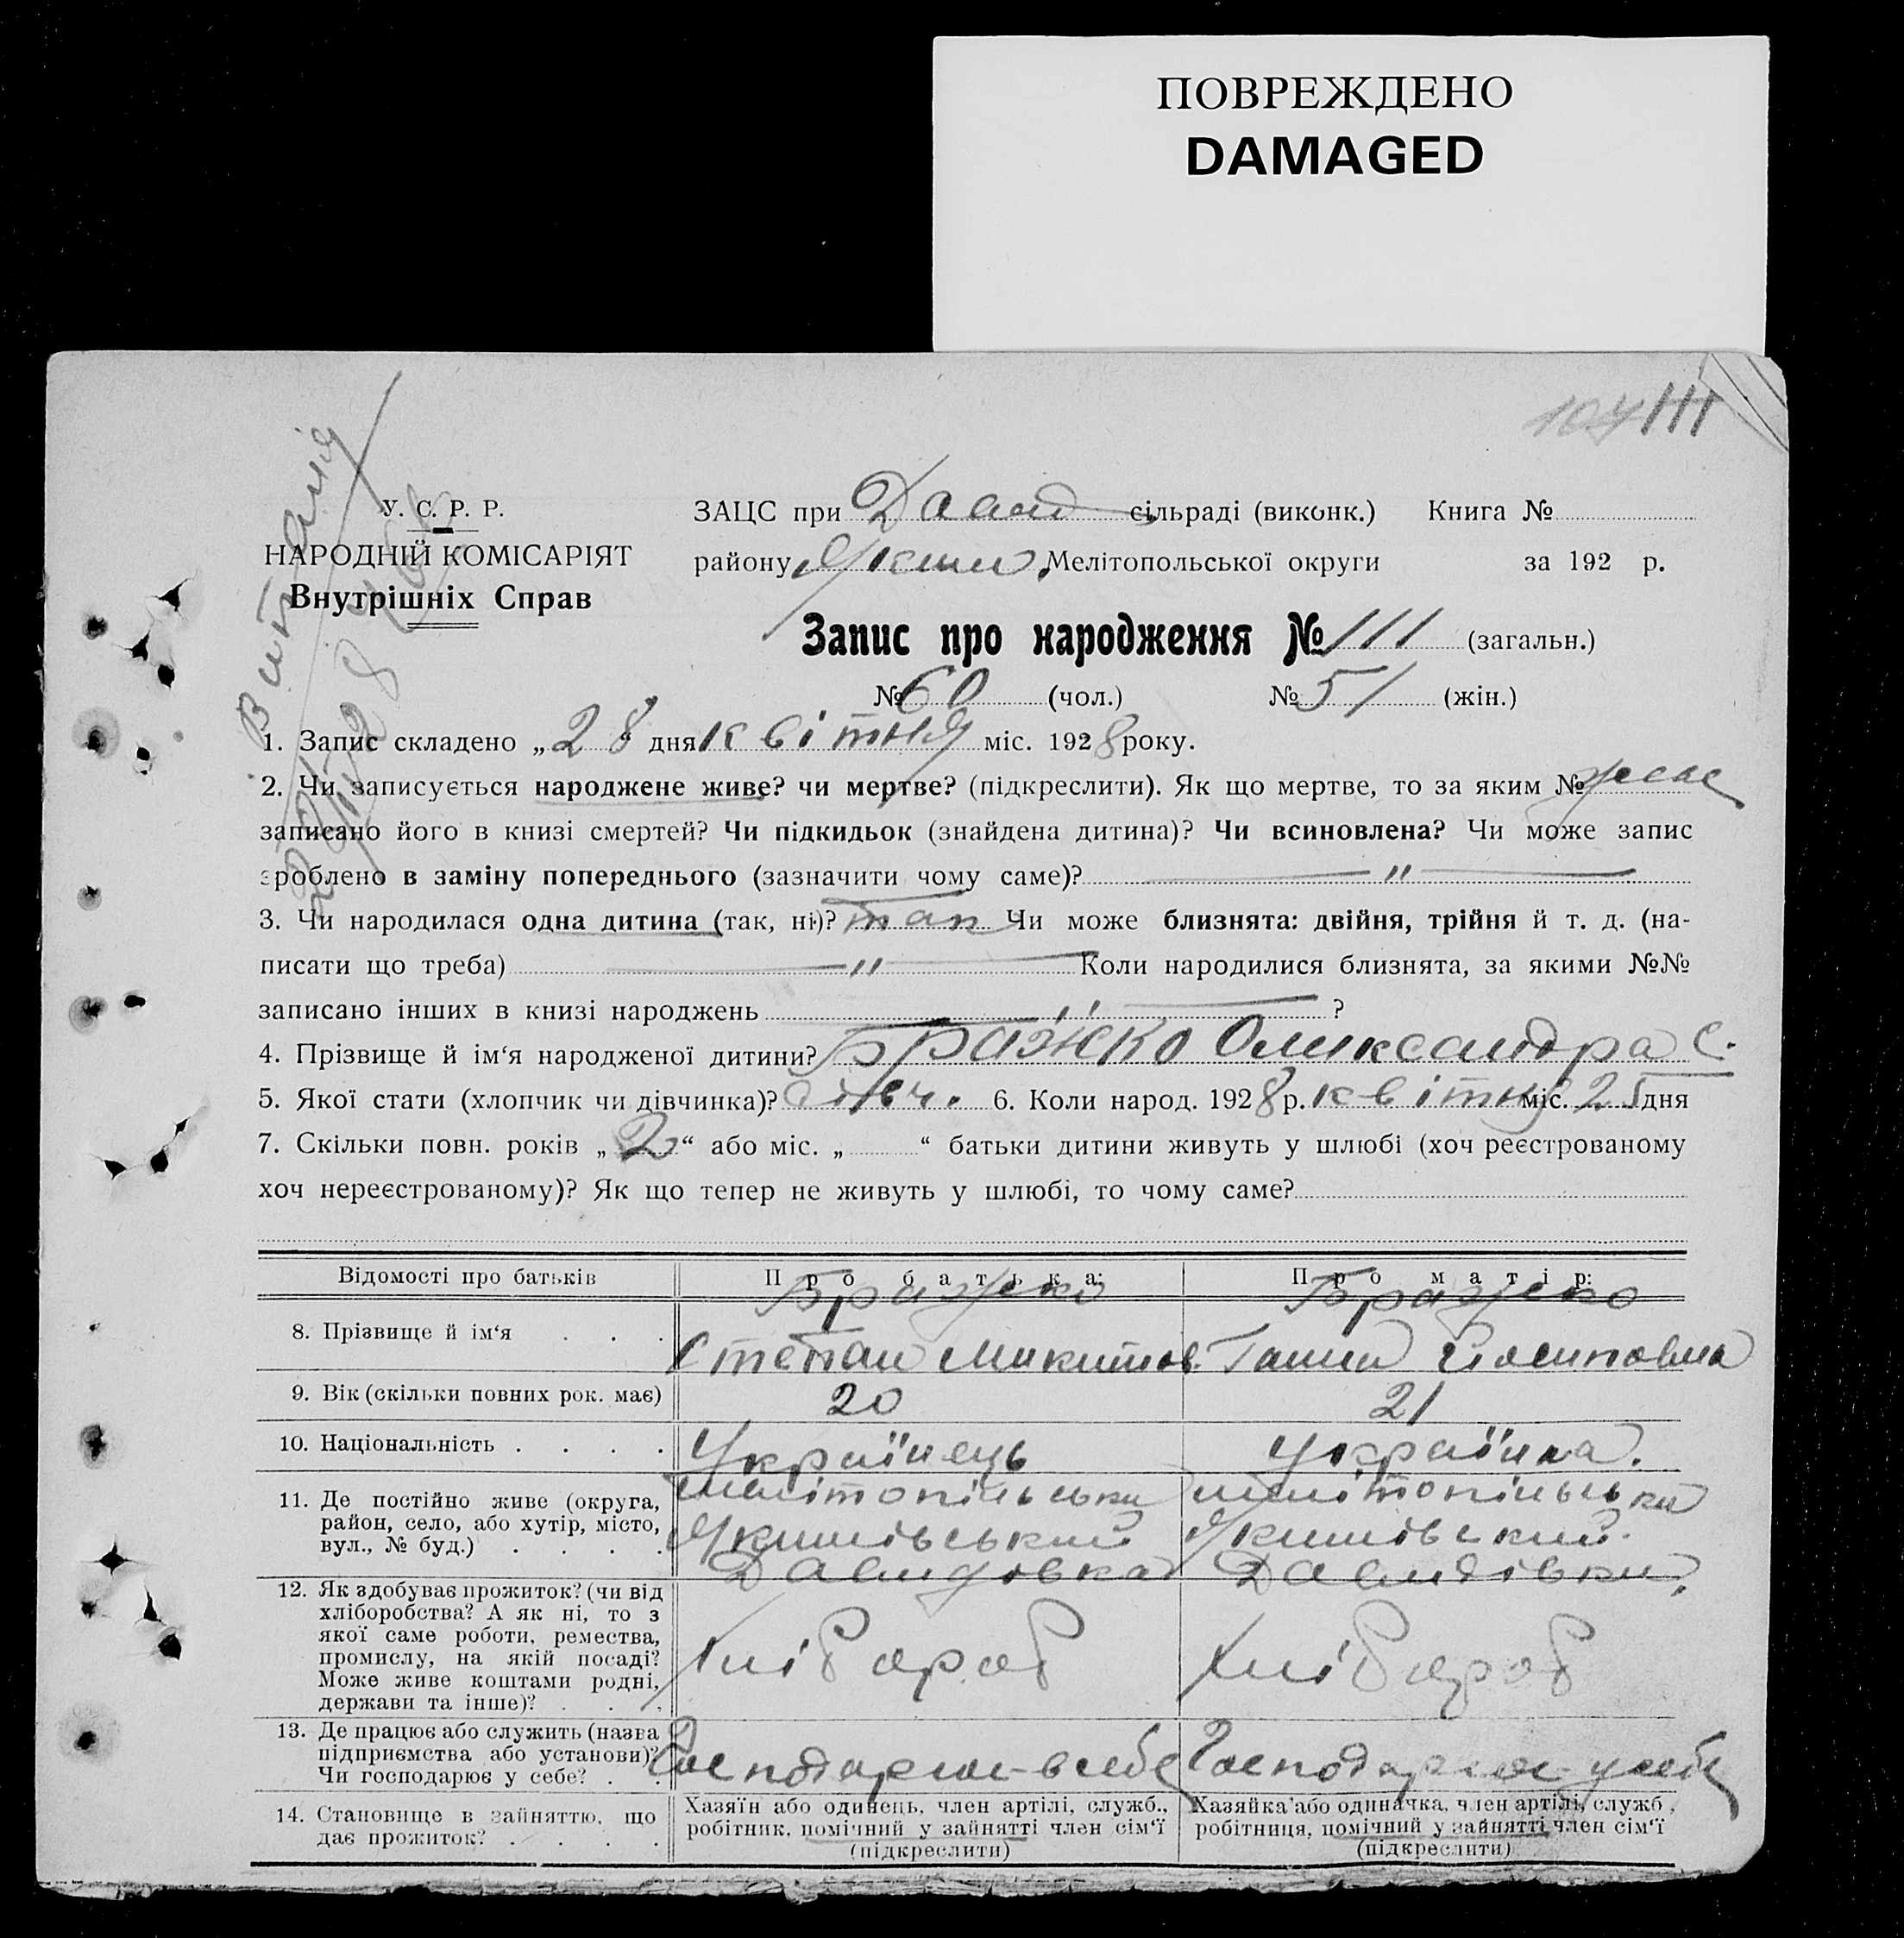 ПОВРЕЖДЕНО
DAMAGED
111
Витання
У. С. Р. Р.
НАРОДНІЙ КОМІСАРІЯТ
Внутрішніх Справ
ЗАЦС при Давид сільраді (виконк.) Книга №
району Яким. Мелітопольської округи за 192 р.
Запис про народження № 111 (загальн.)
№ 60 (чол.) № 51 (жін.)
1. Запис складено „28“ дня квітня міс. 1928 року.
2. Чи записується народжене живе? чи мертве? (підкреслити). Як що мертве, то за яким №
записано його в книзі смертей? Чи підкидьок (знайдена дитина)? Чи всиновлена? Чи може запис
зроблено в заміну попереднього (зазначити чому саме)? — " —
3. Чи народилася одна дитина (так, ні)? так Чи може близнята: двійня, трійня й т. д. (на-
писати що треба) — " — Коли народилися близнята, за якими №№
записано інших в книзі народжень — " — ?
4. Прізвище й ім‘я народженої дитини? Бражко Олександра С.
5. Якої стати (хлопчик чи дівчинка)? дівч. 6. Коли народ. 1928 р. квітня міс. 25 дня
7. Скільки повн. років „2“ або міс. „ “ батьки дитини живуть у шлюбі (хоч реєстрованому
хоч нереєстрованому)? Як що тепер не живуть у шлюбі, то чому саме?
Відомості про батьків
Про батька:
Про матір:
8. Прізвище й ім‘я . . .
Бражко
Степан Микитов.
Бражко
Ганна Йосиповна
9. Вік (скільки повних рок. має)
20
21
10. Національність . . . .
Українець
Українка.
11. Де постійно живе (округа,
район, село, або хутір, місто,
вул., № буд.) . . . .
Мелітопільська
Якимівський
Давидовка
Мелітопільська
Якимівський.
Давидівка,
12. Як здобуває прожиток? (чи від
хліборобства? А як ні, то з
якої саме роботи, ремества,
промислу, на якій посаді?
Може живе коштами родні,
держави та інше)? . . .
Хлібороб
Хлібороб
13. Де працює або служить (назва
підприємства або установи)?
Чи господарює у себе? . .
Господарює в себе
Господарює у себе
14. Становище в зайняттю, що
дає прожиток? . . . .
Хазяїн або одинець, член артілі, служб.,
робітник, помічний у зайнятті член сім‘ї
(підкреслити)
Хазяйка або одиначка, член артілі, служб.,
робітниця, помічний у зайнятті член сім‘ї
(підкреслити)